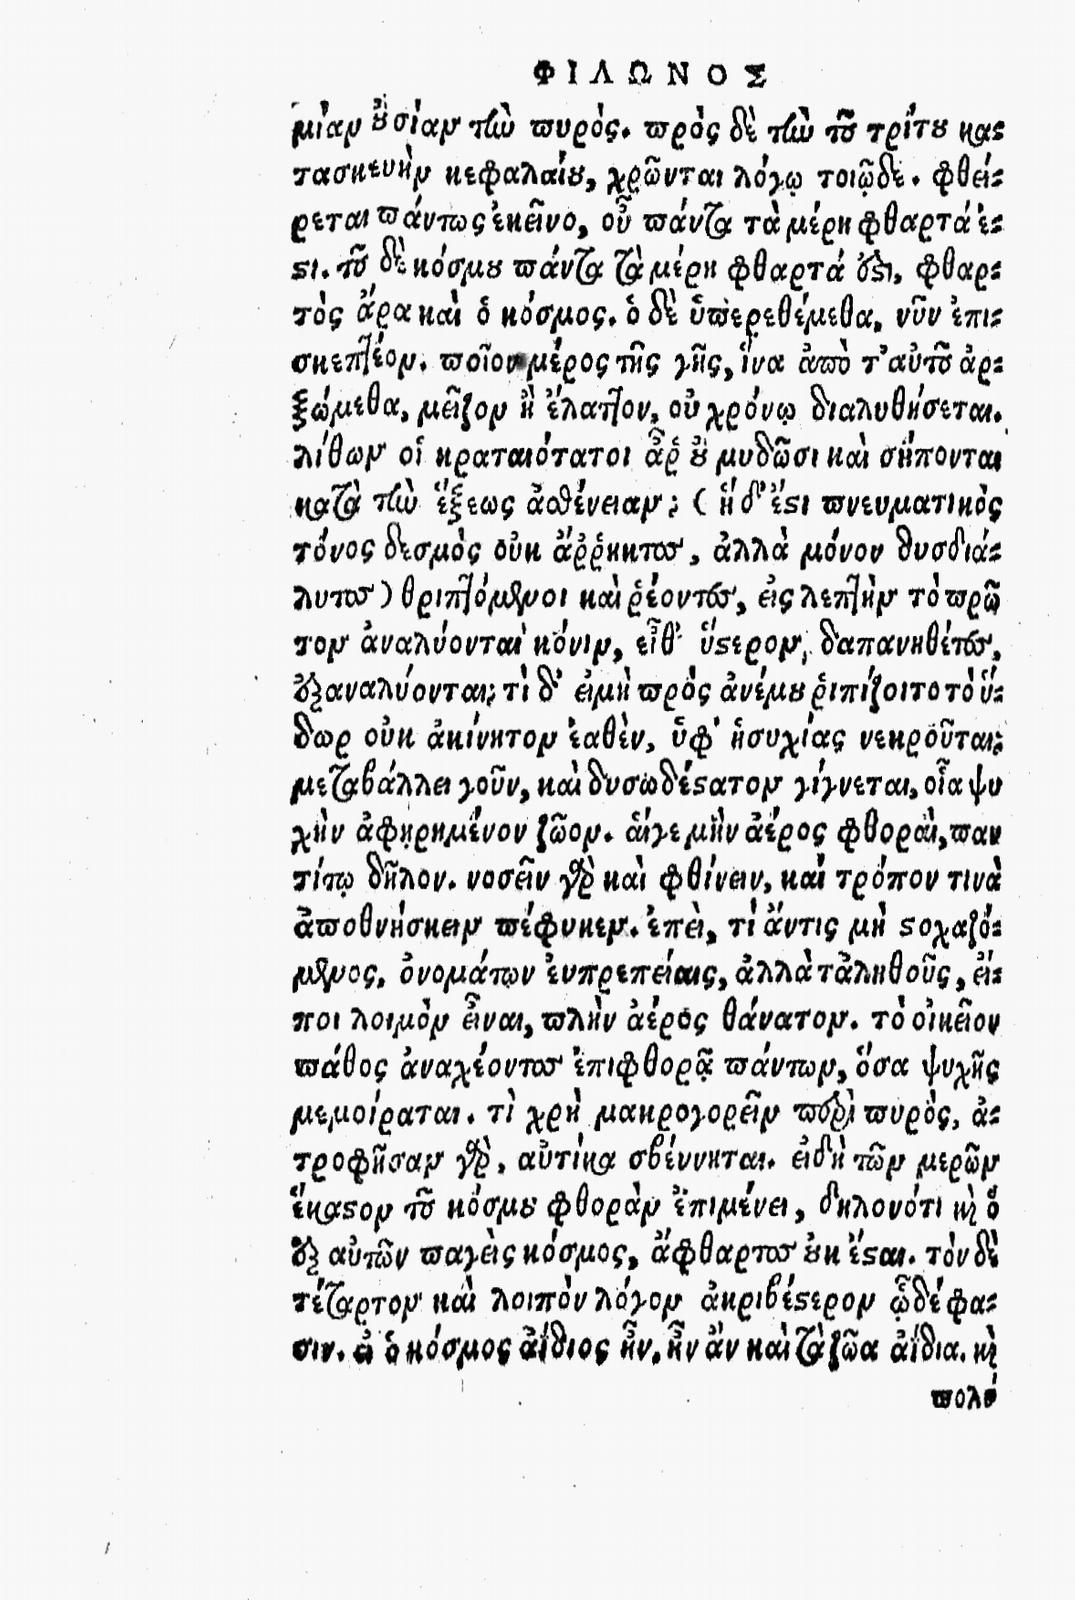 ΦΙΛΩΝΟΣ
μίαν οὐσίαν τὴν πυρός. πρὸς δὲ τὴν τοῦ τρίτου κα-
τασκευὴν κεφαλαίου, χρῶνται λόγῳ τοιῷδε. φθεί-
ρεται πάντως ἐκεῖνο, οὗ πάντα τὰ μέρη φθαρτά ἐ-
στι. τοῦ δὲ κόσμου πάντα τὰ μέρη φθαρτά ἐστι, φθαρ-
τὸς ἄρα καὶ ὁ κόσμος. ὁ δὲ ὑπερεθέμεθα, νῦν ἐπι-
σκεπτέον. ποῖον μέρος τῆς γῆς, ἵνα ἀπὸ τ' αὐτοῦ ἀρ-
ξώμεθα, μεῖζον ἢ ἔλαττον, οὐ χρόνῳ διαλυθήσεται.
λίθων οἱ κραταιότατοι ἆρ' οὐ μυδῶσι καὶ σήπονται
κατὰ τὴν ἕξεως ἀσθένειαν; (ἡ δ' ἔστι πνευματικὸς
τόνος δεσμὸς οὐκ ἄῤῥηκτος, ἀλλὰ μόνον δυσδιά-
λυτος) θριπτόμενοι καὶ ῥέοντες, εἰς λεπτὴν τὸ πρῶ
τον ἀναλύονται κόνιν, εἶθ' ὕστερον, δαπανηθέντες,
ἐξαναλύονται; τί δ' εἰ μὴ πρὸς ἀνέμου ῥιπίζοιτο τὸ ὕ-
δωρ οὐκ ἀκίνητον ἐαθὲν, ὑφ' ἡσυχίας νεκροῦται;
μεταβάλλει γοῦν, καὶ δυσωδέστατον γίγνεται, οἷα ψυ
χὴν ἀφῃρημένον ζῶον. αἵγε μὴν ἀέρος φθοραὶ, παν
τί τῳ δῆλον. νοσεῖν γὰρ καὶ φθίνειν, καί τρόπον τινὰ
ἀποθνήσκειν πέφυκεν. ἐπεὶ, τί ἄντις μὴ στοχαζό-
μενος, ὀνομάτων εὐπρεπείαις, ἀλλὰ τἀληθοῦς, εἴ-
ποι λοιμὸν εἶναι, πλὴν ἀέρος θάνατον. τὸ οἰκεῖον
πάθος ἀναχέοντος ἐπιφθορᾷ πάντων, ὅσα ψυχῆς
μεμοίραται. τὶ χρὴ μακρογορεῖν περὶ πυρὸς, ἀ-
τροφῆσαν γὰρ, αὐτίκα σβέννηται. εἰ δὴ τῶν μερῶν
ἕκαστον τοῦ κόσμου φθορὰν ἐπιμένει, δηλονότι καὶ ὁ
ἐξ αὐτῶν παγεὶς κόσμος, ἄφθαρτος οὐκ ἔσται. τὸν δὲ
τέταρτον καὶ λοιπὸν λόγον ἀκριβέστερον ᾧδέ φα-
σιν. εἰ ὁ κόσμος ἀΐδιος ἦν, ἦν ἂν καὶ τὰ ζῶα ἀΐδια. καὶ
πολύ